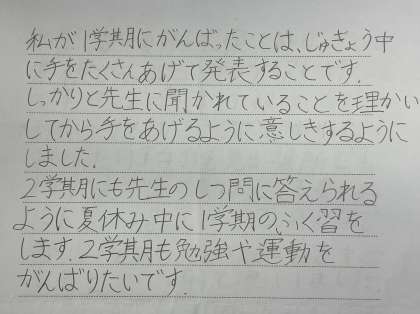 私が1学期にがんばったことは、じゅぎょう中
に手をたくさんあげて発表することです。
しっかりと先生に聞かれていることを理かい
してから手をあげるように意しきするように
しました。
2学期にも先生のしつ問に答えられる
ように夏休み中に1学期の、ふく習を
します。2学期も勉強や運動を
がんばりたいです。